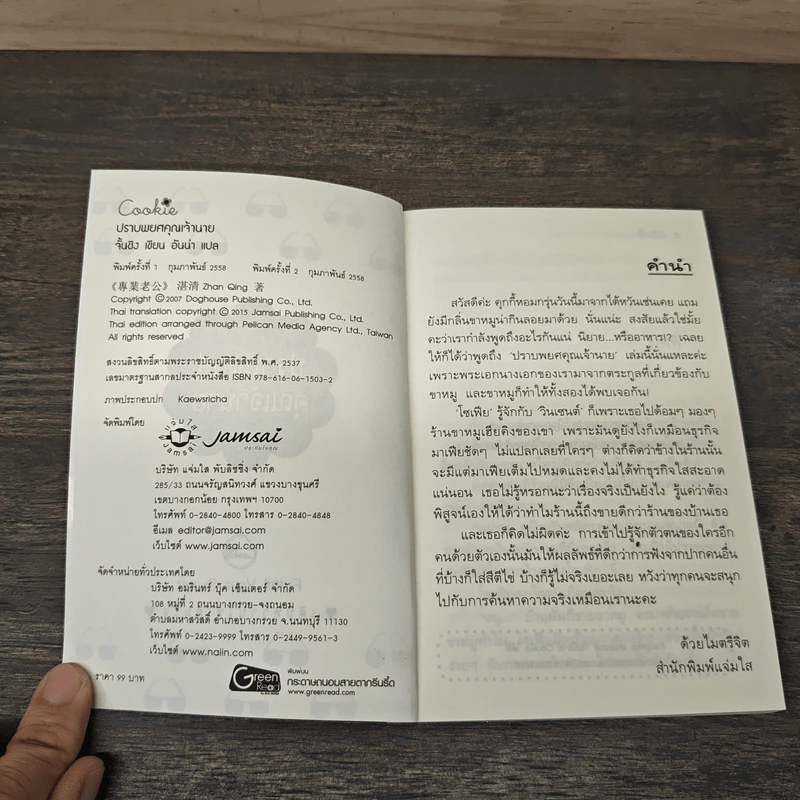 Cookie
ปราบพยศคุณเจ้านาย
จั้นชิง เขียน อันน่า แปล
พิมพ์ครั้งที่ 1 กุมภาพันธ์ 2558 พิมพ์ครั้งที่ 2 กุมภาพันธ์ 2558
《專業老公》 湛清 Zhan Qing 著
Copyright ©2007 Doghouse Publishing Co., Ltd.
Thai translation copyright © 2015 Jamsai Publishing Co., Ltd.
Thai edition arranged through Pelican Media Agency Ltd., Taiwan
All rights reserved
สงวนลิขสิทธิ์ตามพระราชบัญญัติลิขสิทธิ์ พ.ศ. 2537
เลขมาตรฐานสากลประจำหนังสือ ISBN 978-616-06-1503-2
ภาพประกอบปก Kaewsricha
จัดพิมพ์โดย
แจ่มใส
Jamsai
Jamsai
บริษัท แจ่มใส พับลิชชิ่ง จำกัด
285/33 ถนนจรัญสนิทวงศ์ แขวงบางขุนศรี
เขตบางกอกน้อย กรุงเทพฯ 10700
โทรศัพท์ 0-2840-4800 โทรสาร 0-2840-4848
อีเมล editor@jamsai.com
เว็บไซต์ www.jamsai.com
จัดจำหน่ายทั่วประเทศโดย
บริษัท อมรินทร์ บุ๊ค เซ็นเตอร์ จำกัด
108 หมู่ที่ 2 ถนนบางกรวย-จงถนอม
ตำบลมหาสวัสดิ์ อำเภอบางกรวย จ.นนทบุรี 11130
โทรศัพท์ 0-2423-9999 โทรสาร 0-2449-9561-3
เว็บไซต์ www.naiin.com
ราคา 99 บาท
Green Read
พิมพ์บน
กระดาษถนอมสายตากรีนรี้ด
www.greenread.com
คำนำ
สวัสดีค่ะ คุกกี้หอมกรุ่นวันนี้มาจากไต้หวันเช่นเคย แถม
ยังมีกลิ่นขาหมูน่ากินลอยมาด้วย นั่นแน่ะ สงสัยแล้วใช่มั้ย
คะว่าเรากำลังพูดถึงอะไรกันแน่ นิยาย...หรืออาหาร!? เฉลย
ให้ก็ได้ว่าพูดถึง 'ปราบพยศคุณเจ้านาย' เล่มนี้นั่นแหละค่ะ
เพราะพระเอกนางเอกของเรามาจากตระกูลที่เกี่ยวข้องกับ
ขาหมู และขาหมูก็ทำให้ทั้งสองได้พบเจอกัน!
'โซเฟีย' รู้จักกับ 'วินเซนต์' ก็เพราะเธอไปด้อมๆ มองๆ
ร้านขาหมูเฮียคิงของเขา เพราะมันดูยังไงก็เหมือนธุรกิจ
มาเฟียชัดๆ ไม่แปลกเลยที่ใครๆ ต่างก็คิดว่าข้างในร้านนั้น
จะมีแต่มาเฟียเต็มไปหมดและคงไม่ได้ทำธุรกิจใสสะอาด
แน่นอน เธอไม่รู้หรอกนะว่าเรื่องจริงเป็นยังไง รู้แค่ว่าต้อง
พิสูจน์เองให้ได้ว่าทำไมร้านนี้ถึงขายดีกว่าร้านของบ้านเธอ
และเธอก็คิดไม่ผิดค่ะ การเข้าไปรู้จักตัวตนของใครอีก
คนด้วยตัวเองนั้นมันให้ผลลัพธ์ที่ดีกว่าการฟังจากปากคนอื่น
ที่บ้างก็ใส่สีตีไข่ บ้างก็รู้ไม่จริงเยอะเลย หวังว่าทุกคนจะสนุก
ไปกับการค้นหาความจริงเหมือนเรานะคะ
ด้วยไมตรีจิต
สำนักพิมพ์แจ่มใส